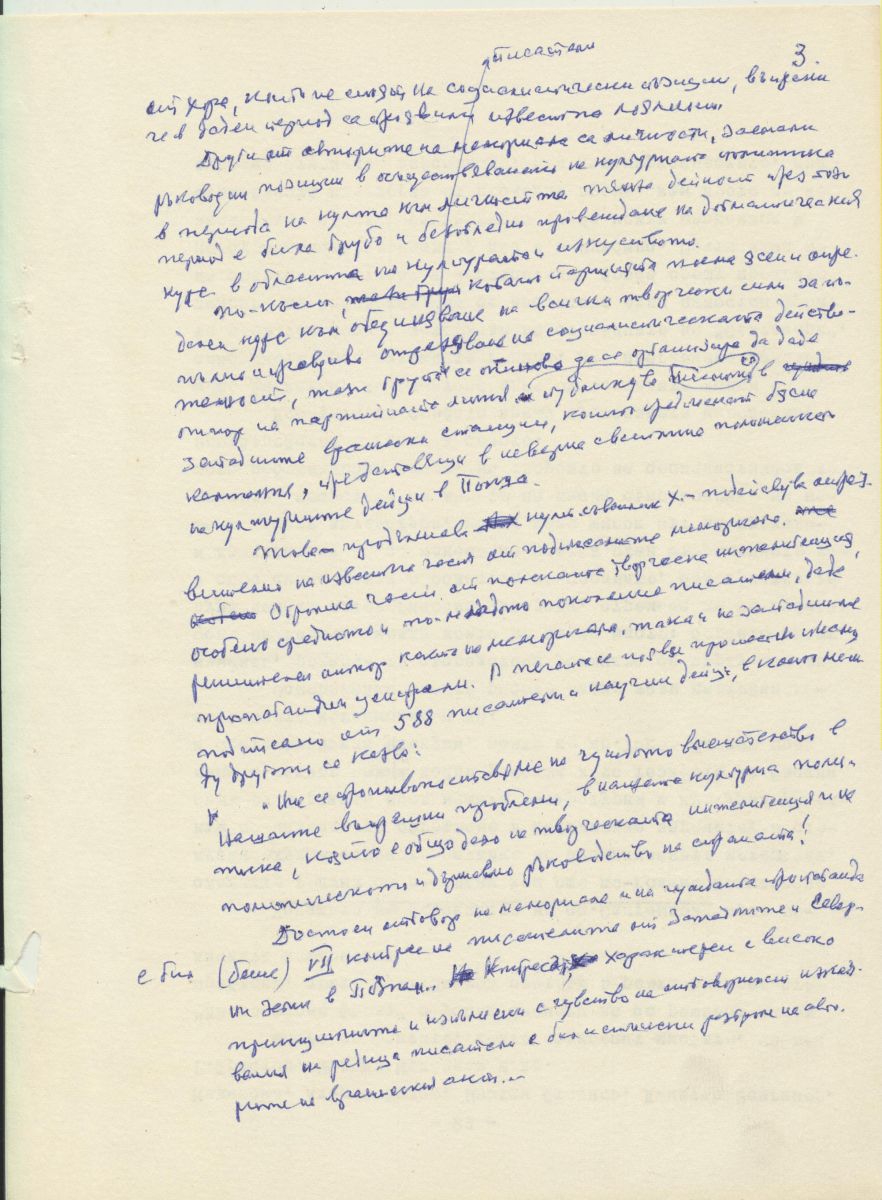 писатели
3.
от хора, които не стоят на социалистически позиции, въпреки
че в даден период са проявили известна лоялност.
Други от авторите на меморила са личности, заемали
ръководни позиции в осъществяването на културната политика
в периода на култа към личността. Тяхната дейност през този
период е била грубо и безогледно провеждане на догматическия
курс в областта на културата и изкуството.
По-късно, когато партията поема ясен и опре-
делен курс към обединяване на всички творчески сили за по-
пълно и правдиво отразяване на социалистическата действи-
телност, тази група се да се организира да даде
отпор на партийната линия и публикува писмото си в
западните вражески станции, които предизвикат бурна
кампания, представящи в невярна светлина положението
на културните дейци в Полша.
Това – продължава културтегерът Х. – подейства отрез-
вително на известна част от подписалите меморила.
Огромна част от полската творческа интелигенция,
особено средното и по-младото поколение писатели, даде
решителен отпор както на меморила, така и на западните
пропагандни централи. В печата се появи протестно писмо
подписано от 588 писатели и научни дейци, в което меж-
ду другото се казва:
"Ние се противопоставяме на чуждото вмешателство в
нашите вътрешни проблеми, в нашата културна поли-
тика, която е общо дело на творческата интелигенция и на
политическото и държавно ръководство на страната!
Достоен отговор на меморила и на чуждата пропаганда
е бил (беше) VII конгрес на писателите от Западните и Север-
ни земи в Познан.. Конгресът, характерен с високо
принципните и изпълнени с чувство на отговорност изказ-
вания на редица писатели е бил истински разгром на авто-
рите на вражеския акт...